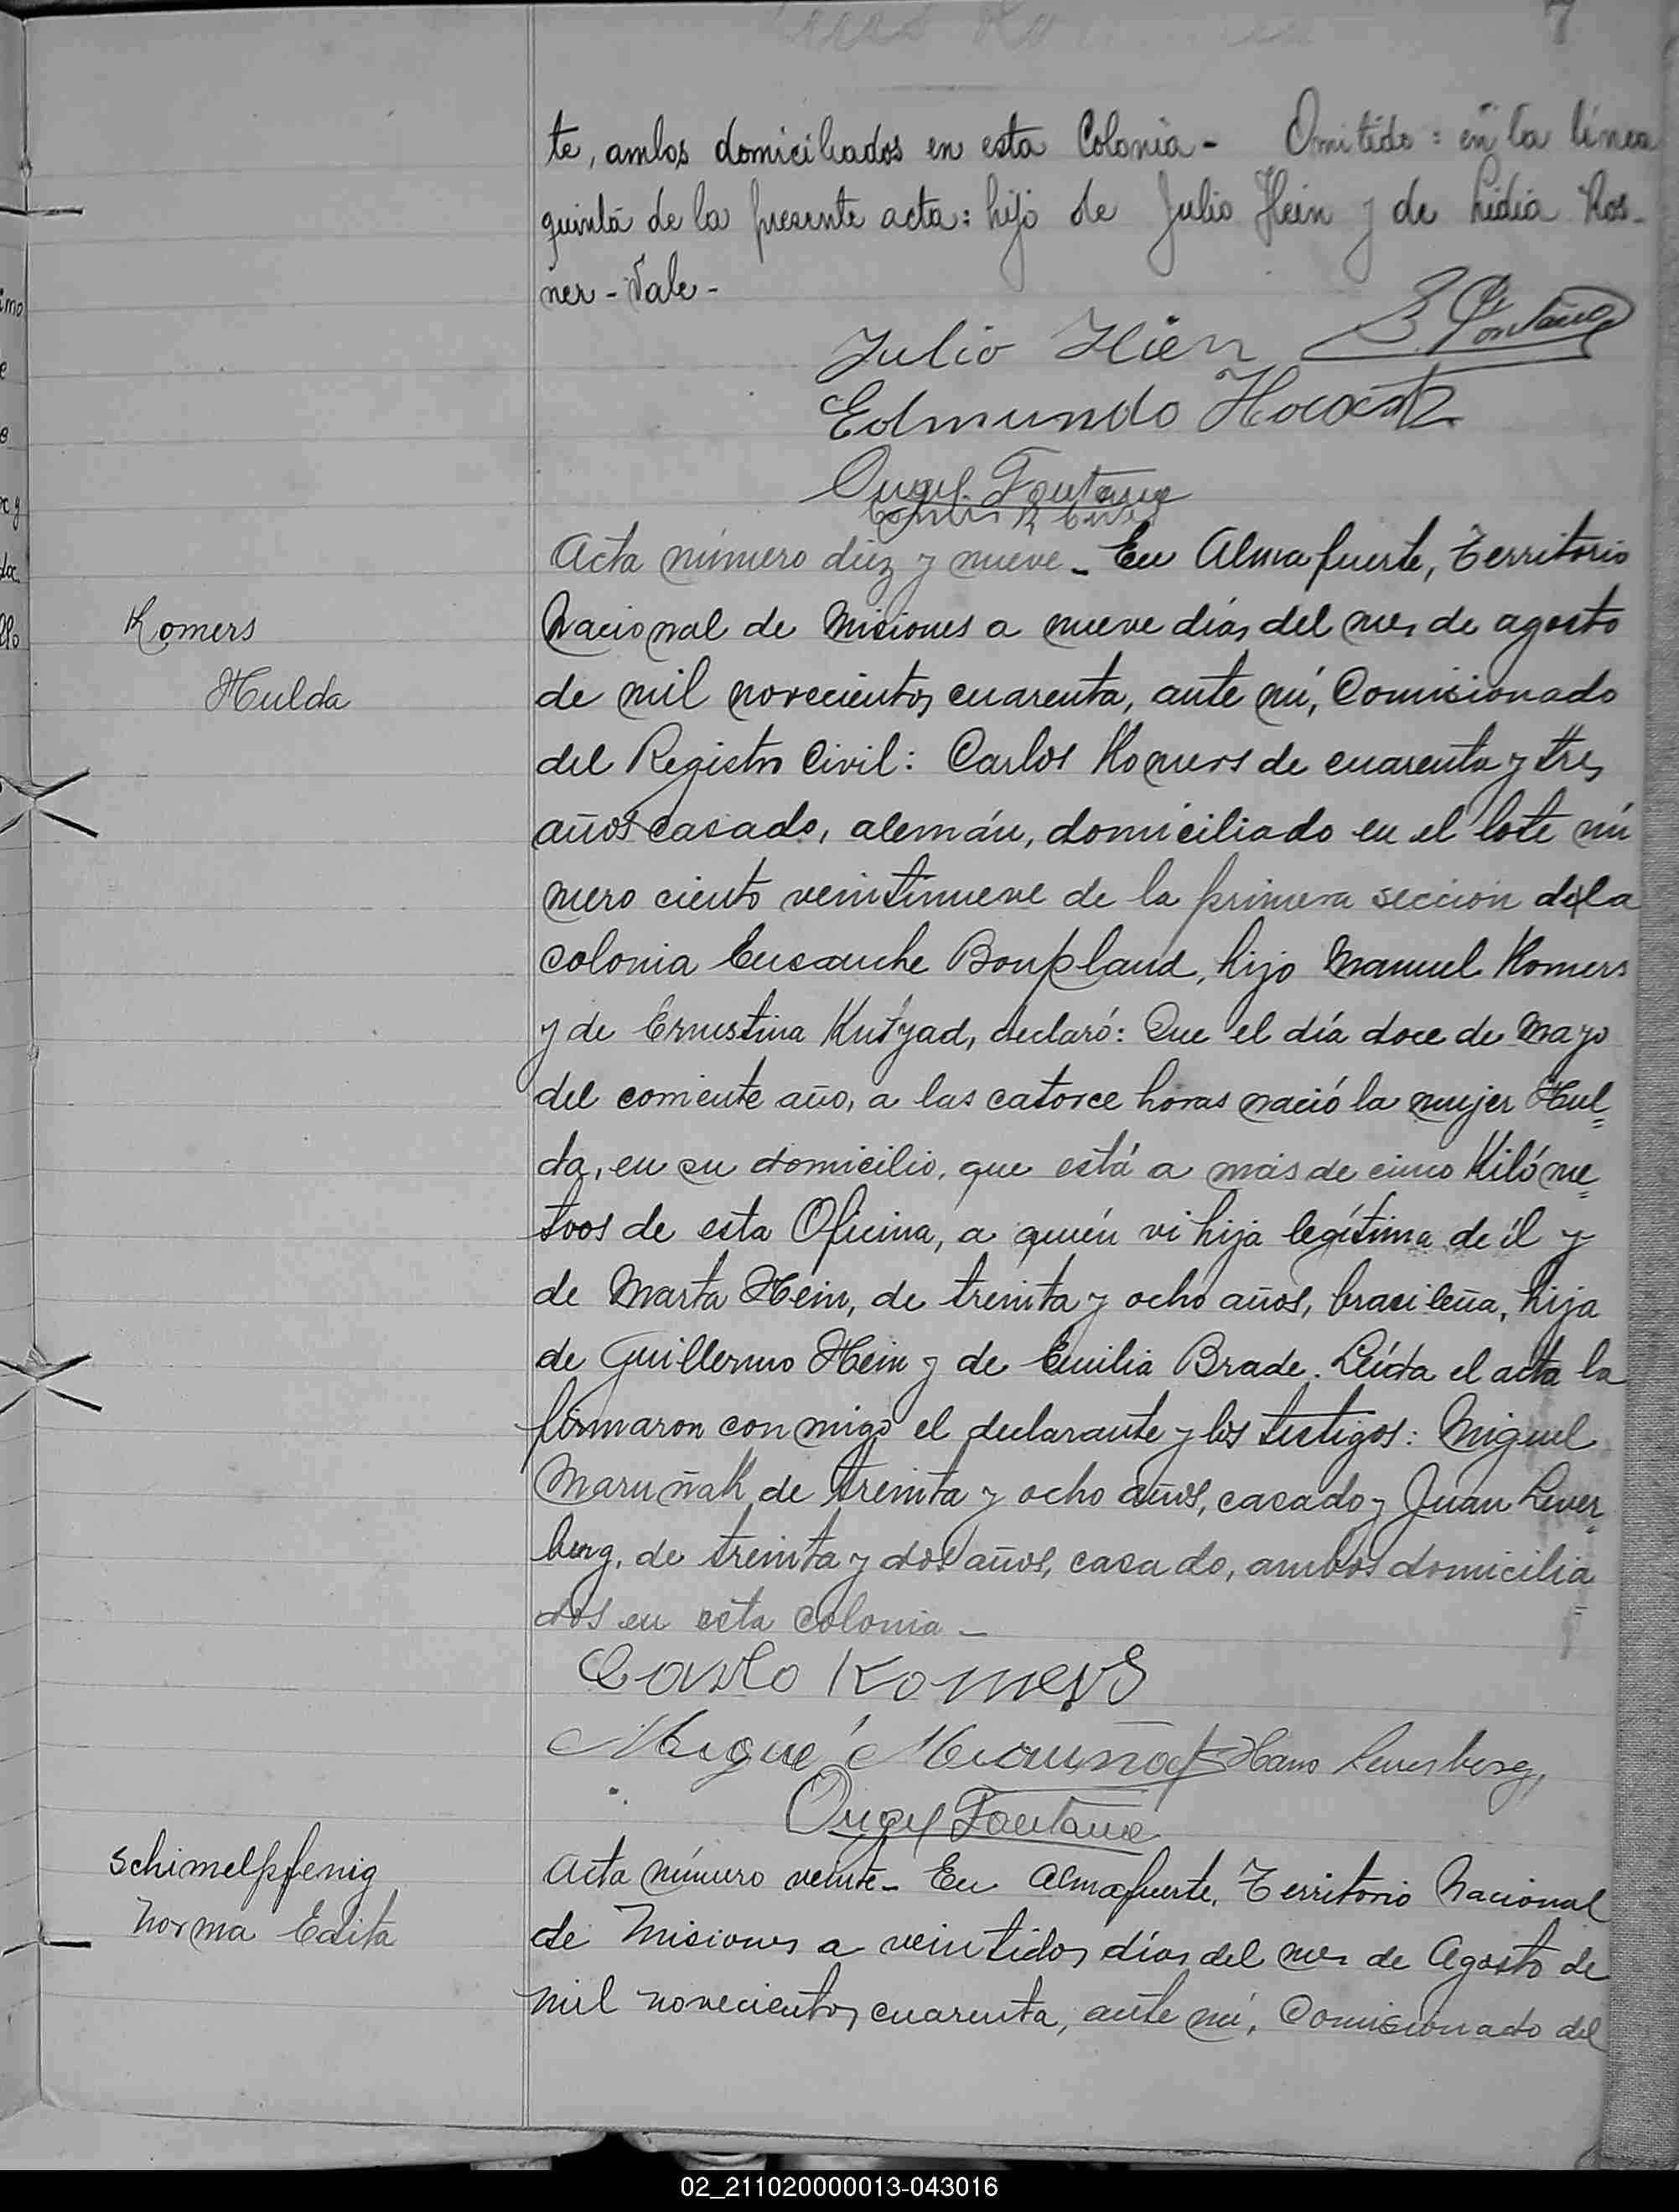 7
te, ambos domiciliados en esta Colonia - Omitido: en la línea
quinta de la presente acta: hijo de Julio Hein y de Lidia Ros-
ner - Vale -
Julio Hien
Edmundo
Angel Fontana
Acta número diez y nueve - En Almafuerte, Territorio
Nacional de Misiones a nueve días del mes de agosto
Komers
Hulda
de mil novecientos cuarenta, ante mí, Comisionado
del Registro Civil: Carlos Komers de cuarenta y tres
años casado, alemán, domiciliado en el lote nú
mero ciento veintinueve de la primera sección de la
colonia Ensanche Bonpland, hijo Manuel Komers
y de Ernestina Kutzad, declaró: Que el día doce de Mayo
del corriente año, a las catorce horas nació la mujer Hul=
da, en su domicilio, que está a más de cinco Kilóme=
tros de esta Oficina, a quién vi hija legítima de él y
de Marta Hein, de treinta y ocho años, brasileña, hija
de Guillermo Hein y de Emilia Brade. Leída el acta la
firmaron conmigo el declarante y los testigos: Miguel
Maruñak de treinta y ocho años, casado y Juan Lever=
berg, de treinta y dos años, casado, ambos domicilia=
dos en esta colonia -
Carlo Komers
Migue Hans Leverberg,
Angel Fontana
Schimelpfenig
Norma Edita
Acta número veinte - En Almafuerte, Territorio Nacional
de Misiones a veintidos días del mes de Agosto de
mil novecientos cuarenta, ante mí, Comisionado del
02_211020000013-043016